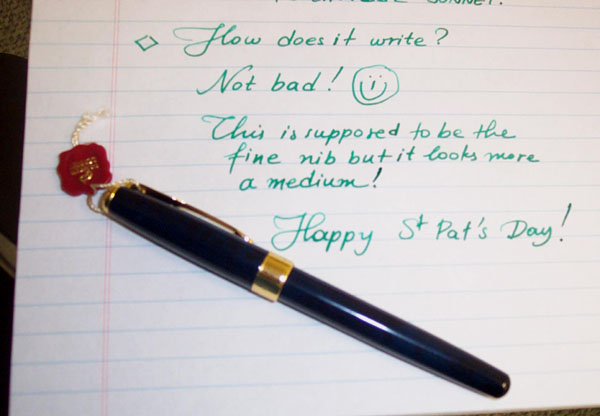 SONNET.
◇ How does it write?
Not bad!
This is supposed to be the
fine nib but it looks more
a medium!
Happy St Pat's Day!